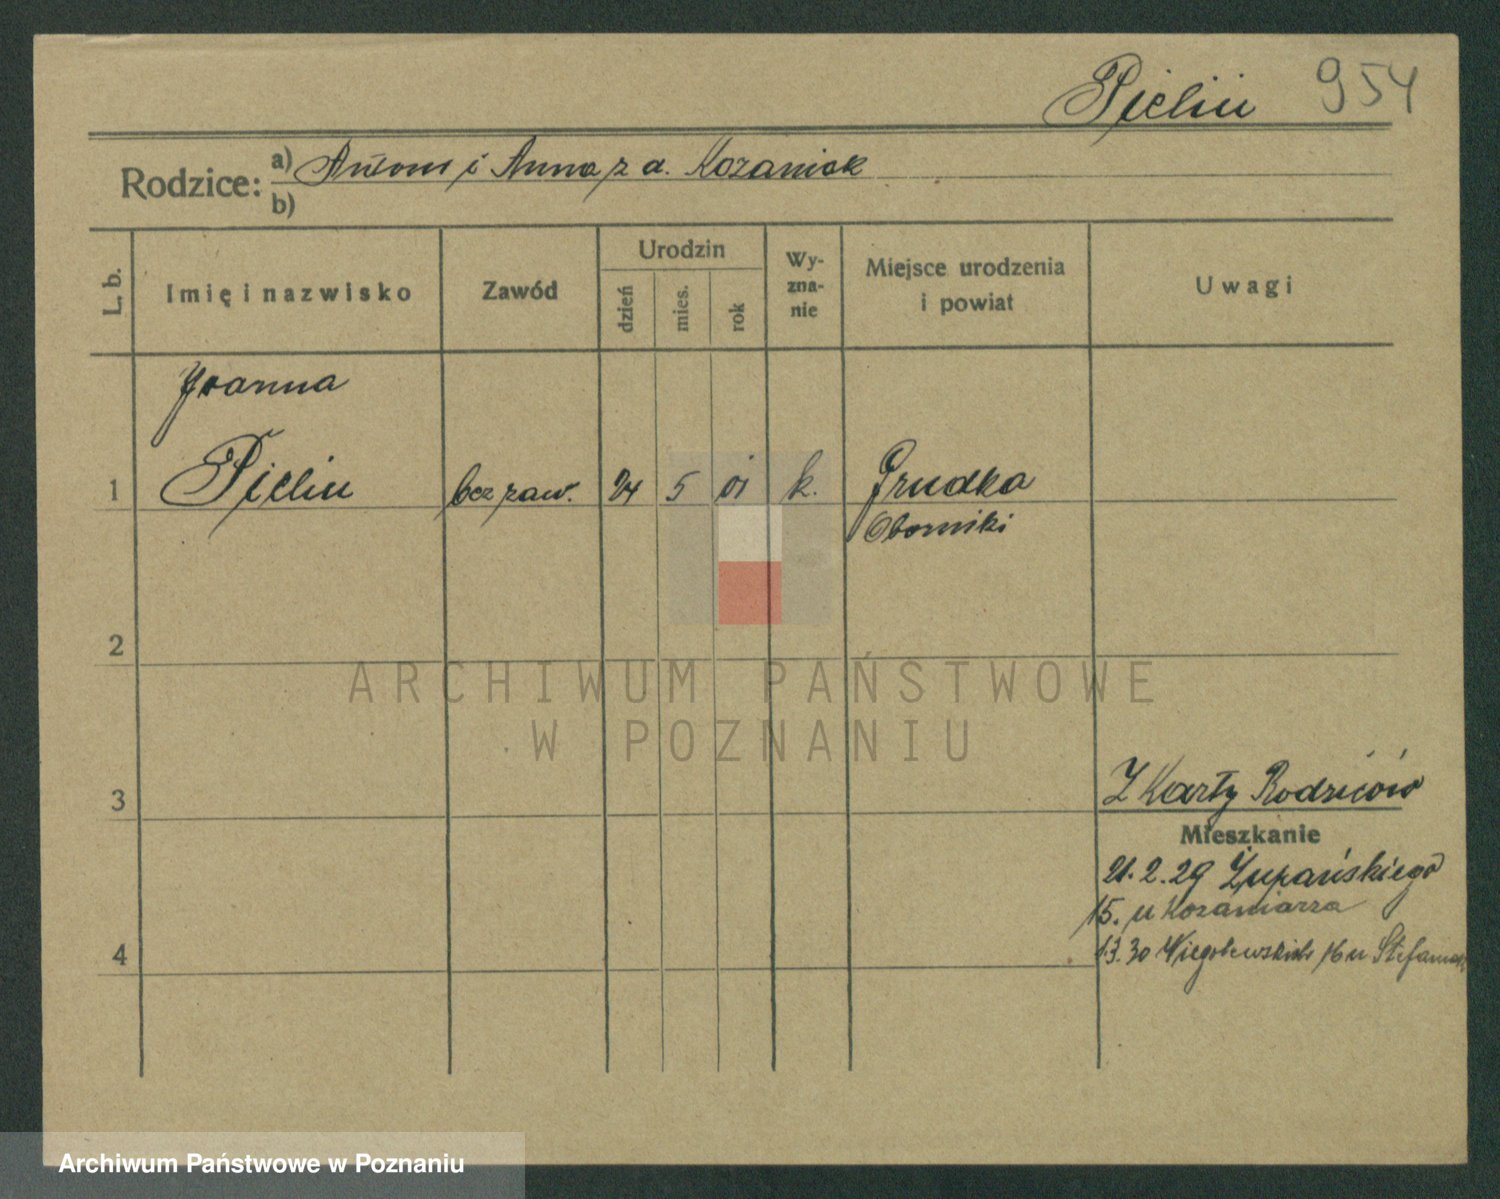 Pielin 954
Rodzice: a) Antoni i Anna z d. Kozaniak
b)
L. b.
Imię i nazwisko
Zawód
Urodzin
dzień
mies.
rok
Wy-
zna-
nie
Miejsce urodzenia
i powiat
Uwagi
Joanna
1 Pielin bez zaw. 24 5 01 k. Grudka
Oborniki
2
3
4
Z Karty Rodziców
Mieszkanie
21.2.29 Żupańskiego
15. u Kozaniarza
1.3.30 Niegolewskich 16 u
ARCHIWUM PAŃSTWOWE
W POZNANIU
Archiwum Państwowe w Poznaniu